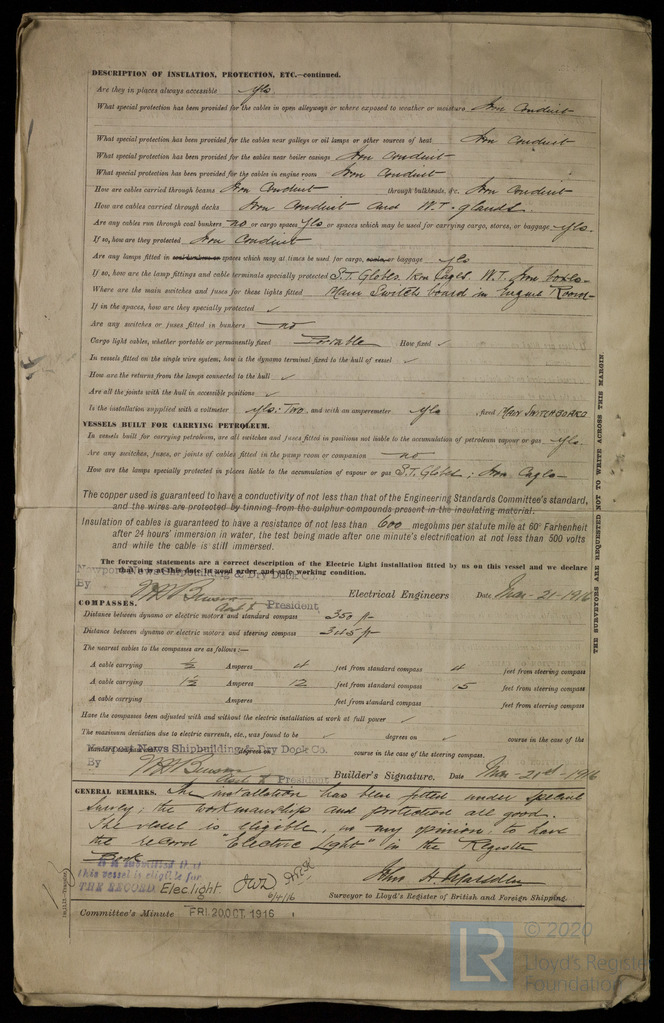 DESCRIPTION OF INSULATION, PROTECTION, ETC.—continued.
Are they in places always accessible yes
What special protection has been provided for the cables in open alleyways or where exposed to weather or moisture Iron Conduit
What special protection has been provided for the cables near galleys or oil lamps or other sources of heat Iron Conduit
What special protection has been provided for the cables near boiler casings Iron Conduit
What special protection has been provided for the cables in engine room Iron Conduit
How are cables carried through beams Iron Conduit through bulkheads, &c. Iron Conduit
How are cables carried through decks Iron Conduit and W.T. glands
Are any cables run through coal bunkers no or cargo spaces yes or spaces which may be used for carrying cargo, stores, or baggage yes.
If so, how are they protected Iron Conduit
Are any lamps fitted in coal bunkers or spaces which may at times be used for cargo, coals, or baggage yes
If so, how are the lamp fittings and cable terminals specially protected S.T. Globes. Iron Cages. W.T. Iron boxes
Where are the main switches and fuses for these lights fitted Main Switch board in Engine Room
If in the spaces, how are they specially protected ✓
Are any switches or fuses fitted in bunkers no
Cargo light cables, whether portable or permanently fixed Portable How fixed ✓
In vessels fitted on the single wire system, how is the dynamo terminal fixed to the hull of vessel ✓
How are the returns from the lamps connected to the hull ✓
Are all the joints with the hull in accessible positions ✓
Is the installation supplied with a voltmeter yes: Two, and with an amperemeter yes , fixed MAIN SWITCHBOARD
VESSELS BUILT FOR CARRYING PETROLEUM.
In vessels built for carrying petroleum, are all switches and fuses fitted in positions not liable to the accumulation of petroleum vapour or gas yes
Are any switches, fuses, or joints of cables fitted in the pump room or companion no
How are the lamps specially protected in places liable to the accumulation of vapour or gas S.T. Globes; Iron Cages
The copper used is guaranteed to have a conductivity of not less than that of the Engineering Standards Committee's standard,
and the wires are protected by tinning from the sulphur compounds present in the insulating material.
Insulation of cables is guaranteed to have a resistance of not less than 600 megohms per statute mile at 60° Farhenheit
after 24 hours' immersion in water, the test being made after one minute's electrification at not less than 500 volts
and while the cable is still immersed.
The foregoing statements are a correct description of the Electric Light installation fitted by us on this vessel and we declare
that it is at this date in good order and safe working condition.
Newport News Shipbuilding & Dry Dock Co.
By Asst. to President Electrical Engineers Date Mar-21-1916
COMPASSES.
Distance between dynamo or electric motors and standard compass 350 ft
Distance between dynamo or electric motors and steering compass 345 ft
The nearest cables to the compasses are as follows:—
A cable carrying ½ Amperes 4 feet from standard compass 4 feet from steering compass
A cable carrying 1½ Amperes 12 feet from standard compass 15 feet from steering compass
A cable carrying Amperes feet from standard compass feet from steering compass
Have the compasses been adjusted with and without the electric installation at work at full power ✓
The maximum deviation due to electric currents, etc., was found to be ✓ degrees on ✓ course in the case of the
degrees on course in the case of the steering compass.
Newport News Shipbuilding & Dry Dock Co.
By President Builder's Signature. Date Mar-21st-1916
GENERAL REMARKS. The installation has been fitted under special
survey; the workmanship and protection all good.
The vessel is eligible, in my opinion, to have
the record "Electric Light" in the Register
Book
It is submitted that
this vessel is eligible for
THE RECORD. Elec light. JWD 6/4/16
Surveyor to Lloyd's Register of British and Foreign Shipping.
Committee's Minute FRI. 20. OCT 1916
THE SURVEYORS ARE REQUESTED NOT TO WRITE ACROSS THIS MARGIN.
© 2020
LR Lloyd's Register
Foundation